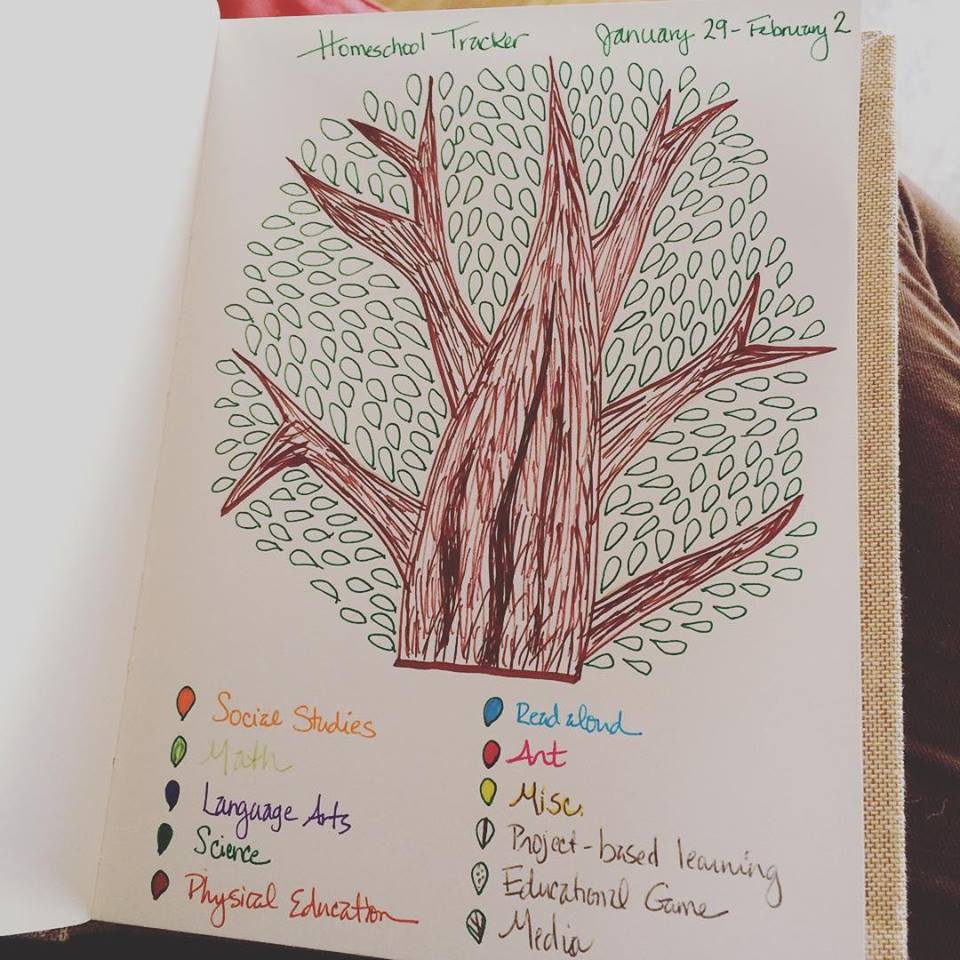 Homeschool Tracker January 29-February 2
Social Studies
Math
Language Arts
Science
Physical Education
Read aloud
Art
Misc.
Project-based learning
Educational Game
Media